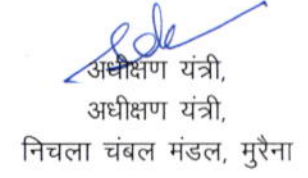 अधीक्षण यंत्री,
अधीक्षण यंत्री,
निचला चंबल मंडल, मुरैना